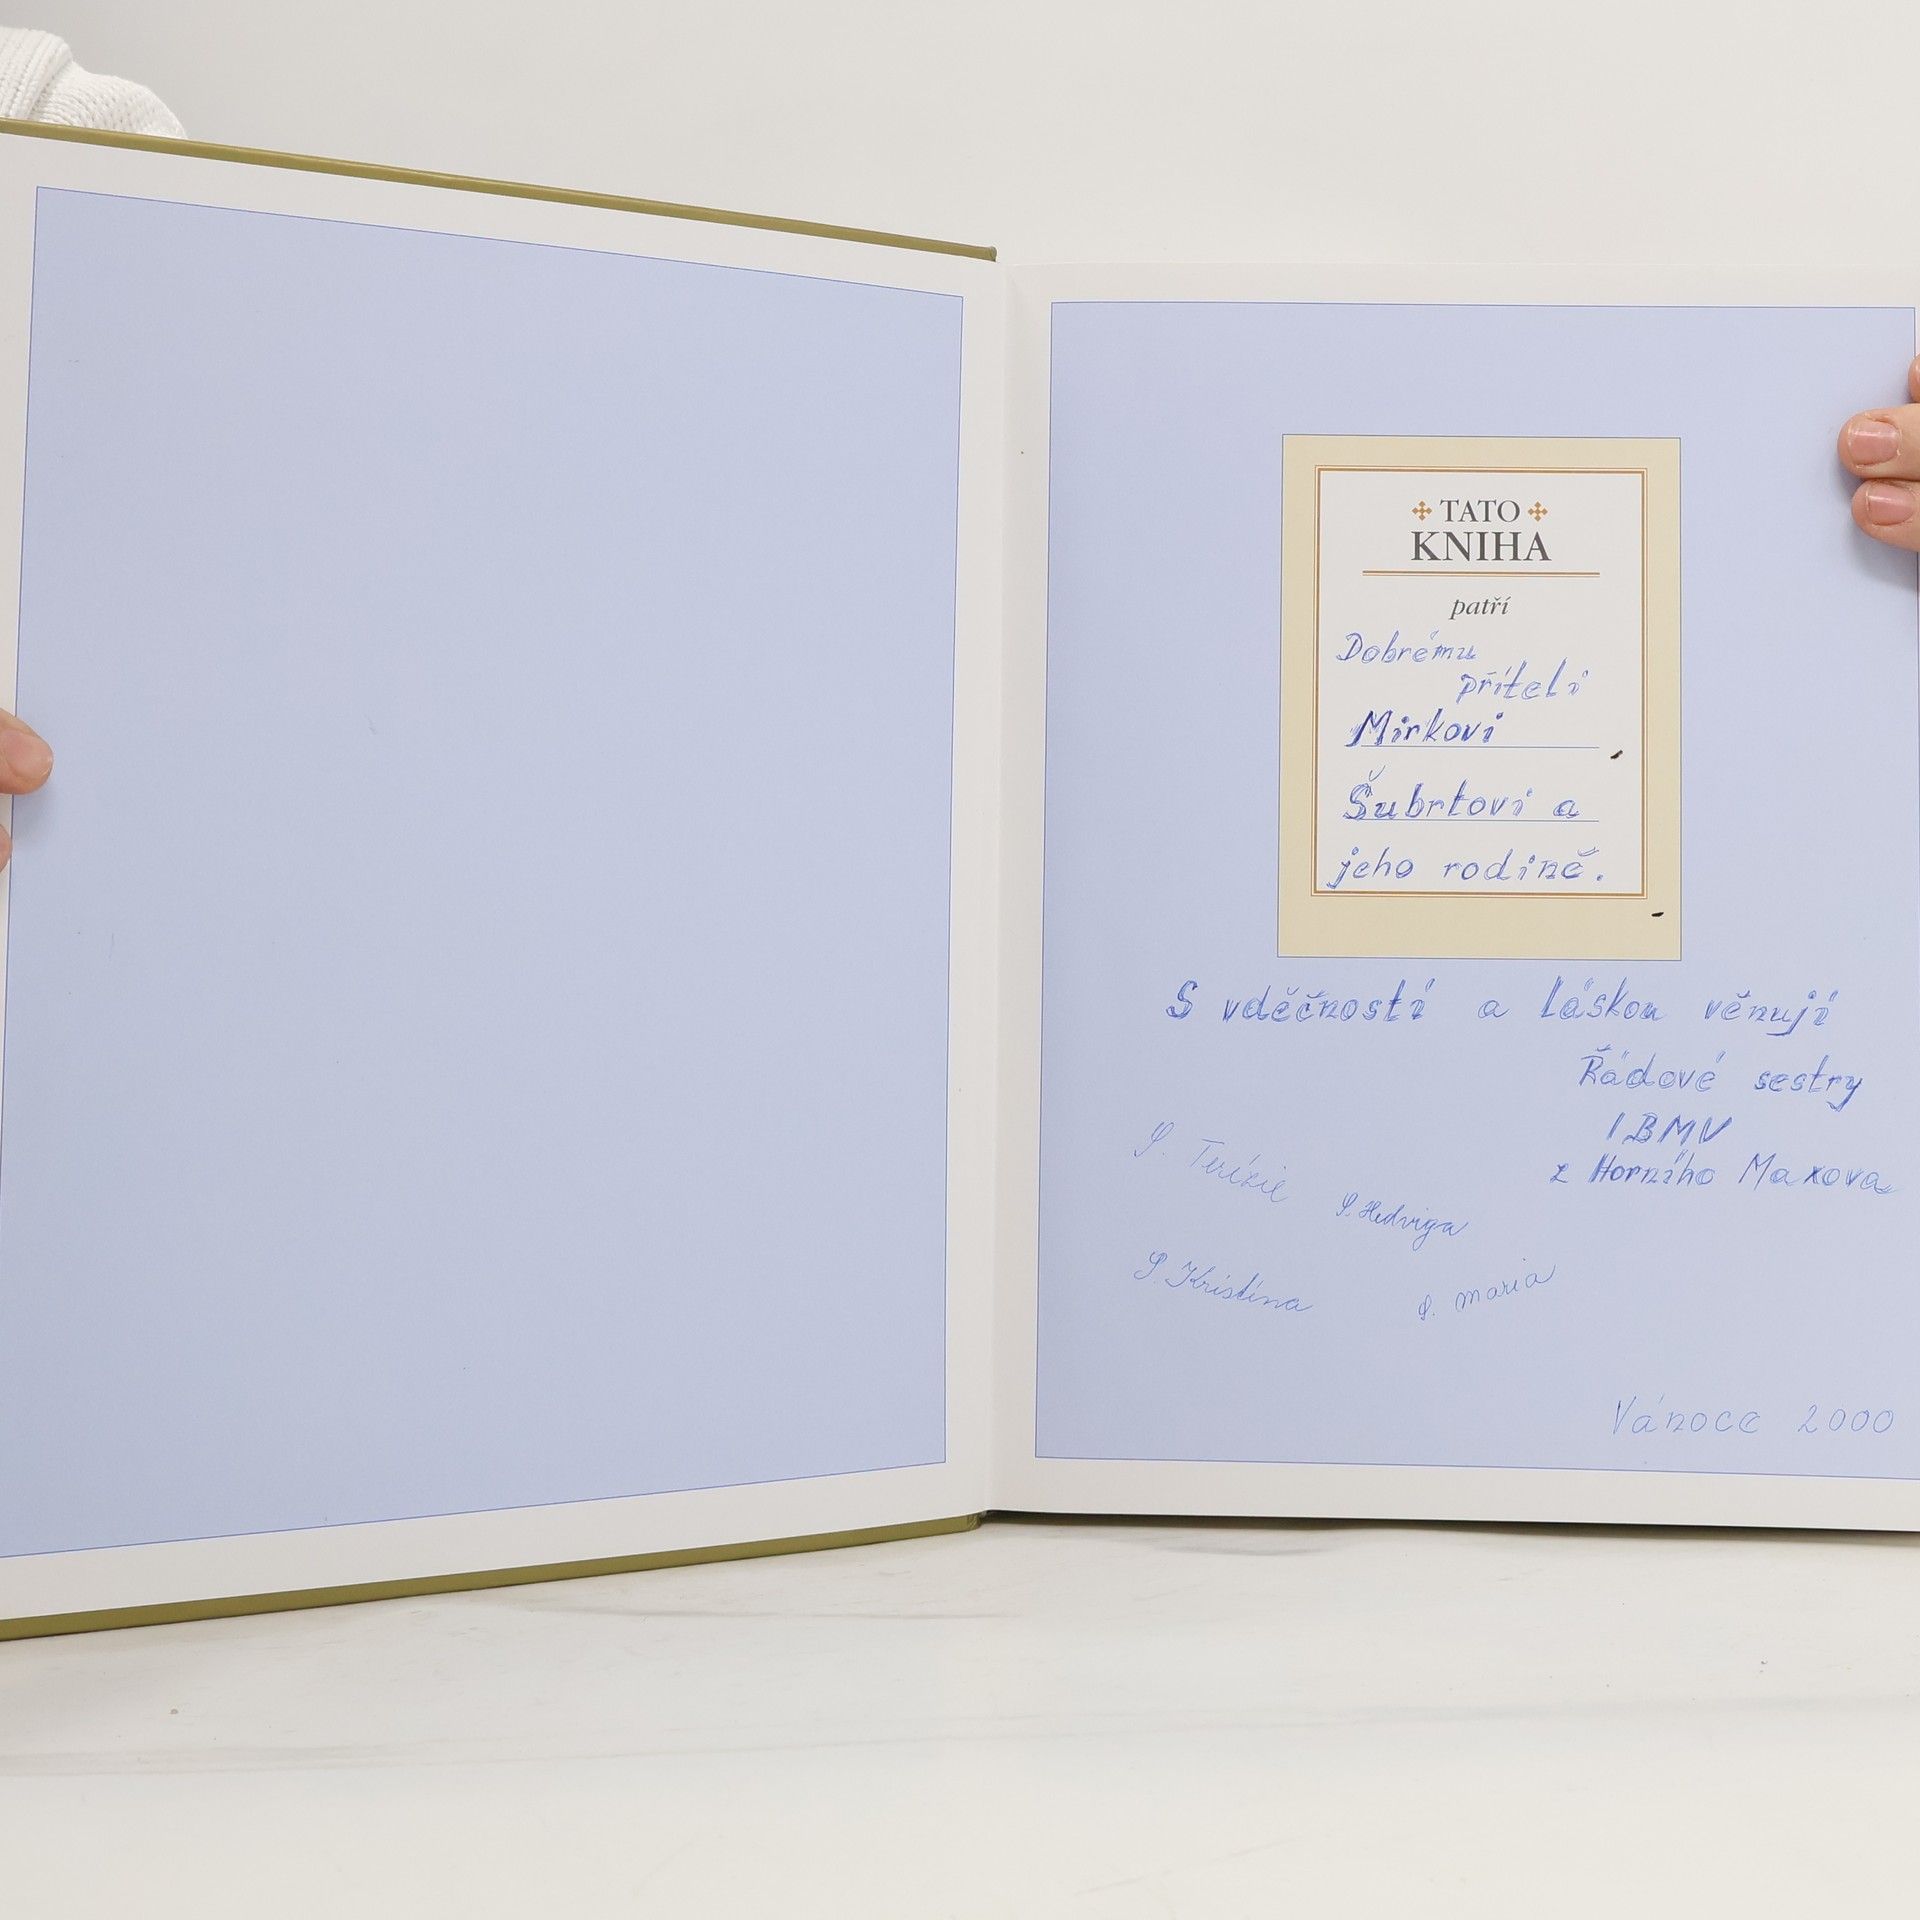 TATO
KNIHA
patří
Dobrému
příteli
Mirkovi
Šubrtovi a
jeho rodině.
S vděčností a láskou věnují
Řádové sestry
IBMV
z Horního Maxova
S. Terézie
S. Hedviga
S. Kristina
S. Maria
Vánoce 2000